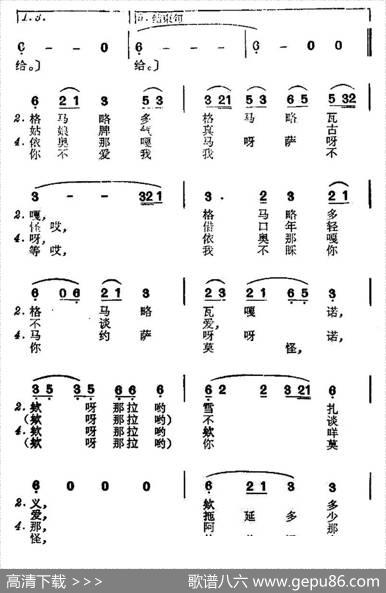 1.3. 结束句
6 - - 0 6 - - 6 0 0
给。〕 给。〕
6 2 1 3 5 3 3 2 1 5 3 6 5 5 3 2
2. 格 马 略 多 格 马 略 瓦
姑 娘 脾 气 真 古
4. 依 奥 那 嘎 马 呀 萨 呀
你 不 爱 我 我 不
3 - - 3 2 1 3 · 2 3 2 1
2. 嘎, 格 马 略 多
怪 哎, 借 口 年 轻
4. 呀, 依 奥 那 嘎
等 哎, 我 不 睬 你
6 0 6 2 1 3 2 3 2 1 6 5 3
2. 格 马 略 瓦 嘎 诺,
不 谈 爱,
4. 马 约 萨 呀 呀 诺,
你 莫 怪,
3 5 3 5 6 6 6 6 2 2 3 2 1 6
2. 欸 呀 那 拉 哟 雪 扎
(欸 呀 那 拉 哟) 不 谈
4. (欸 呀 那 拉 哟 欸 咩
(欸 呀 那 拉 哟) 你 莫
6 0 0 0 6 2 1 3 3
2. 义, 欸 多
爱, 拖 延 多 少
4. 那, 阿 那
怪,
高清下载 >>> 歌谱八六 www.gepu86.com